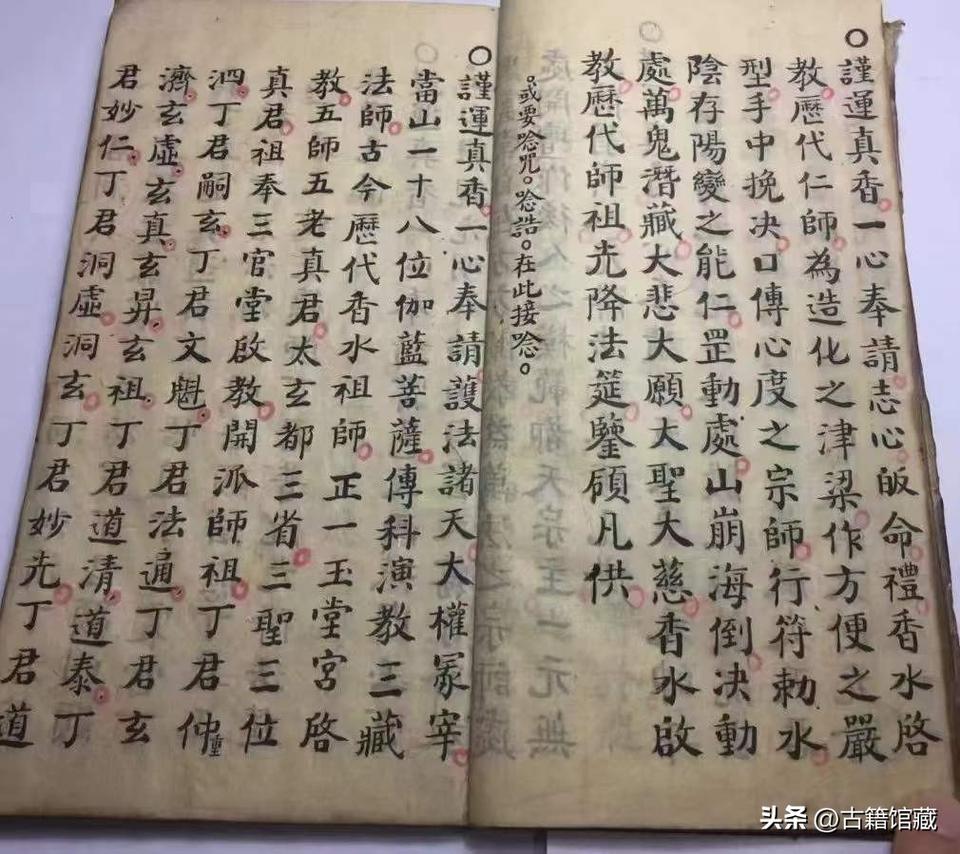 ○謹運真香一心奉請志心皈命禮香水啓
教歷代仁師為造化之津梁作方便之嚴
型手中挽决口傳心度之宗師行符勅水
陰存陽變之能仁罡動處山崩海倒决動
處萬鬼潛藏大悲大願大聖大慈香水啟
教歷代師祖光降法筵鑒領凡供
。或要唸咒。唸誥。在此接唸。
○謹運真香一心奉請護法諸天大權冢宰
當山一十八位伽藍菩薩傳科演教三藏
法師古今歷代香水祖師正一玉堂宮啓
教五師五老真君太玄都三省三聖三位
真君祖奉三官堂啟教開派師祖丁君仲
泗丁君嗣玄丁君文魁丁君法通丁君玄
濟玄虛玄真玄昇玄祖丁君道清道泰丁
君妙仁丁君洞虛洞玄丁君妙光丁君道
头条 @古籍馆藏